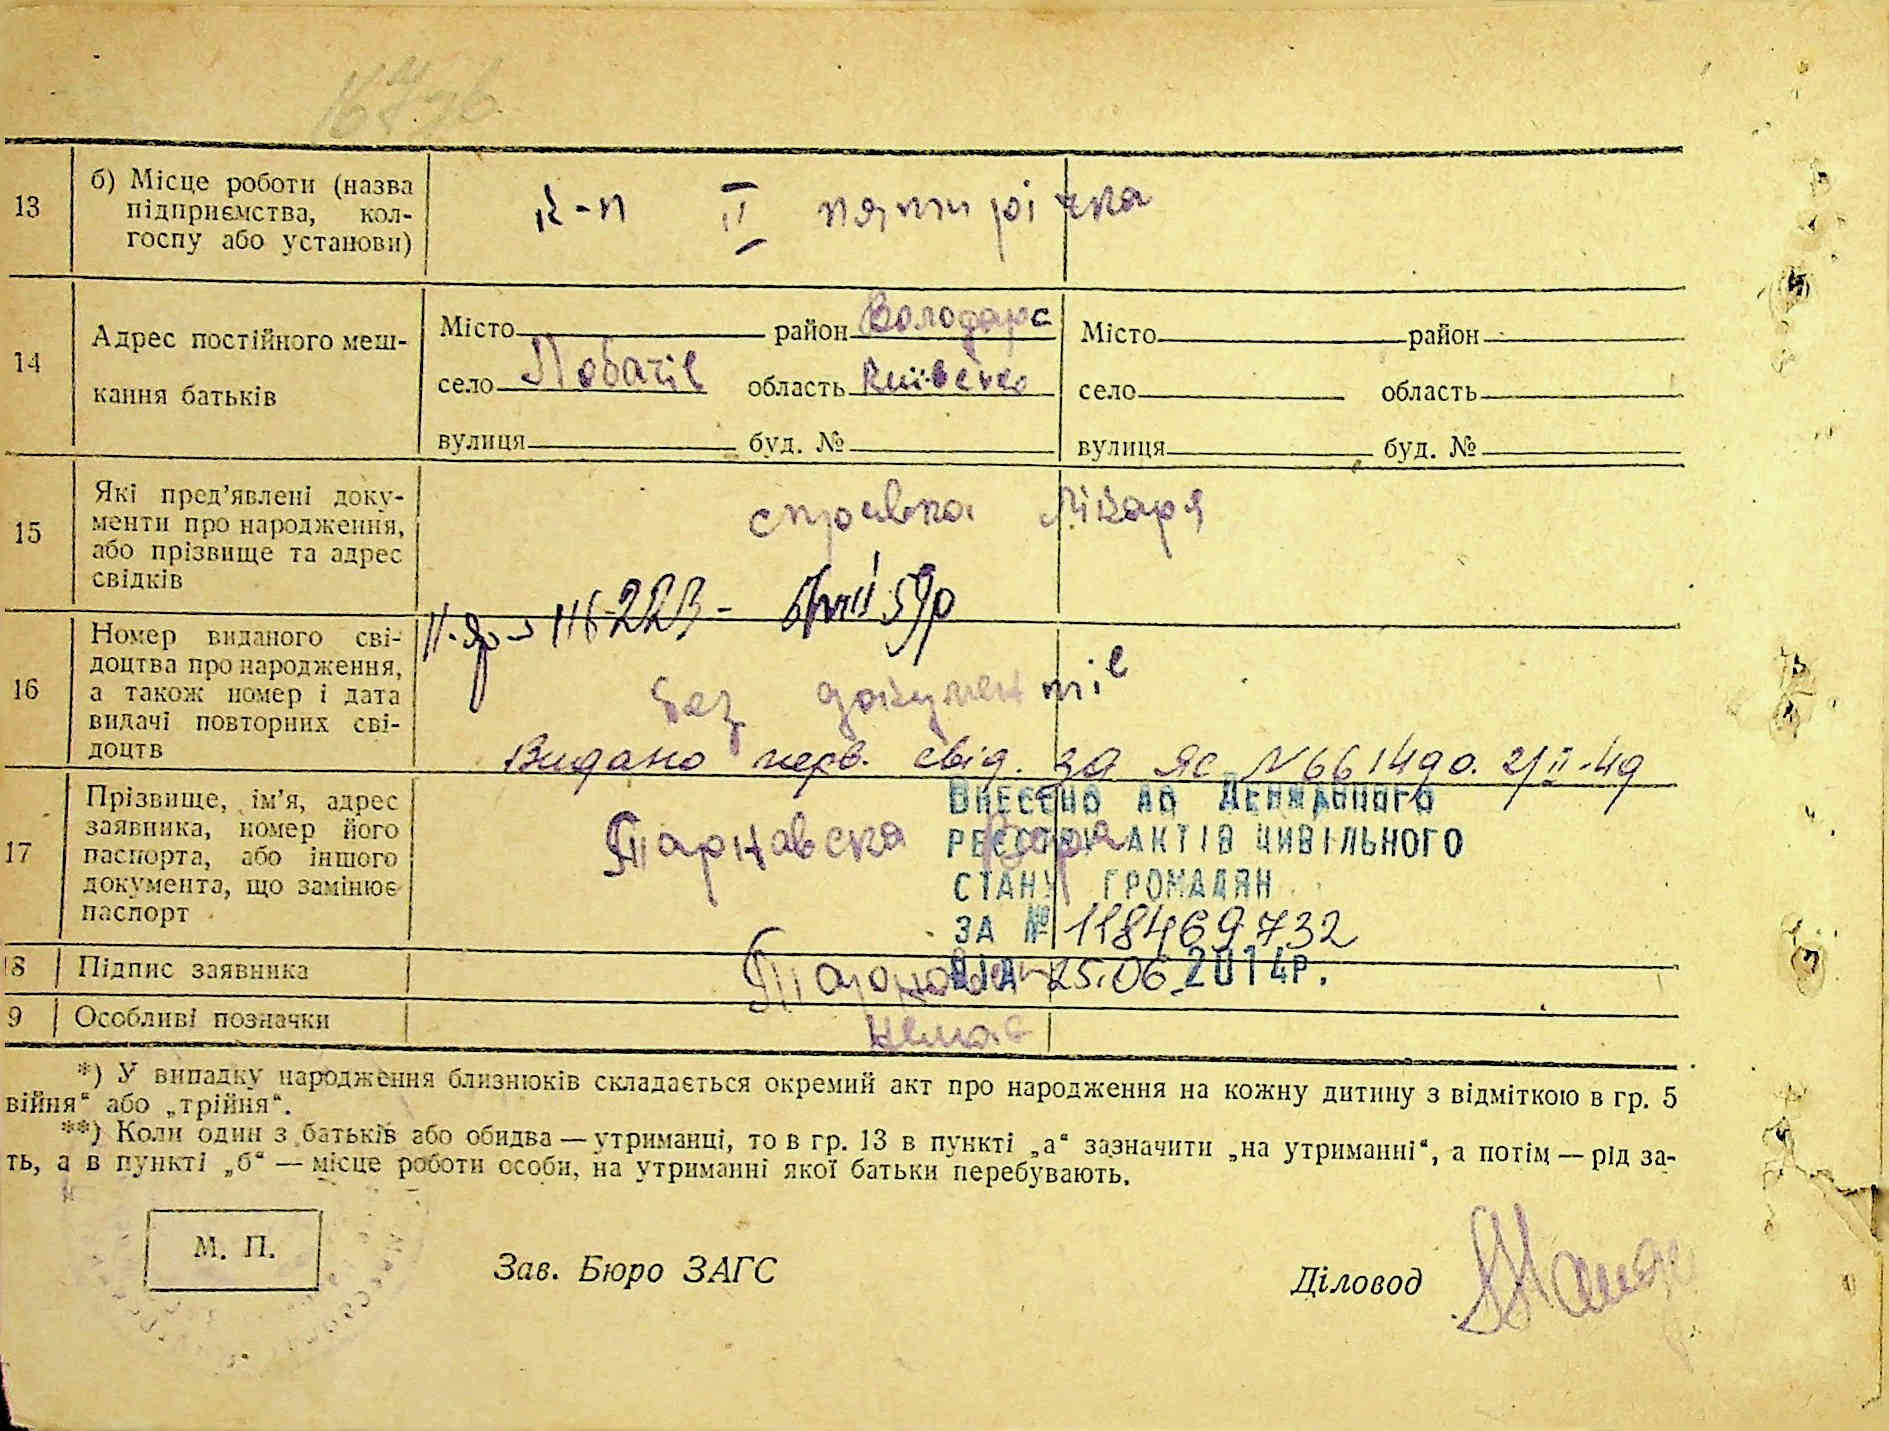 13 б) Місце роботи (назва
підприємства, кол-
госпу або установи)
к-п II пятирічка
14 Адрес постійного меш-
кання батьків
Місто район Володарс Місто район
село Лобачів область Київсько село область
вулиця буд. № вулиця буд. №
15 Які пред’явлені доку-
менти про народження,
або прізвище та адрес
свідків
справка лікаря
16 Номер виданого сві-
доцтва про народження,
а також номер і дата
видачі повторних сві-
доцтв
без документів
Видано перв. свід. за яс N 661490. 2/II-49
17 Прізвище, ім’я, адрес
заявника, номер його
паспорта, або іншого
документа, що замінює
паспорт
Тарнавска
Внесено до Державного
реєстру актів цивільного
стану громадян
за № 118469732
від 25.06.2014р.
8 Підпис заявника
9 Особливі позначки
немає
*) У випадку народження близнюків складається окремий акт про народження на кожну дитину з відміткою в гр. 5
війня“ або „трійня“.
**) Коли один з батьків або обидва — утриманці, то в гр. 13 в пункті „а“ зазначити „на утриманні“, а потім — рід за-
ть, а в пункті „б“ — місце роботи особи, на утриманні якої батьки перебувають.
М. П.
Зав. Бюро ЗАГС
Діловод